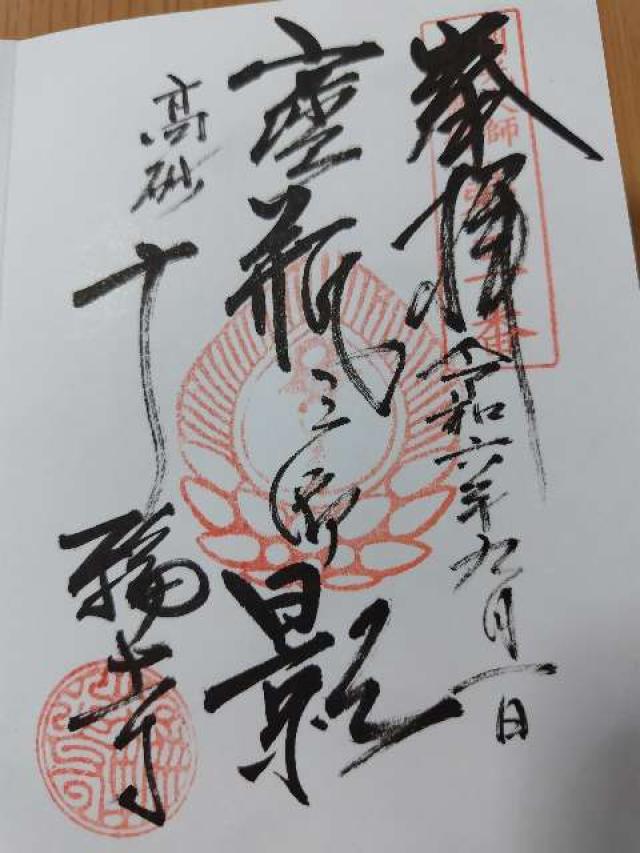 奉拝 令和六年九月一日
大師
番
宝瓶之御影
高砂 十輪寺